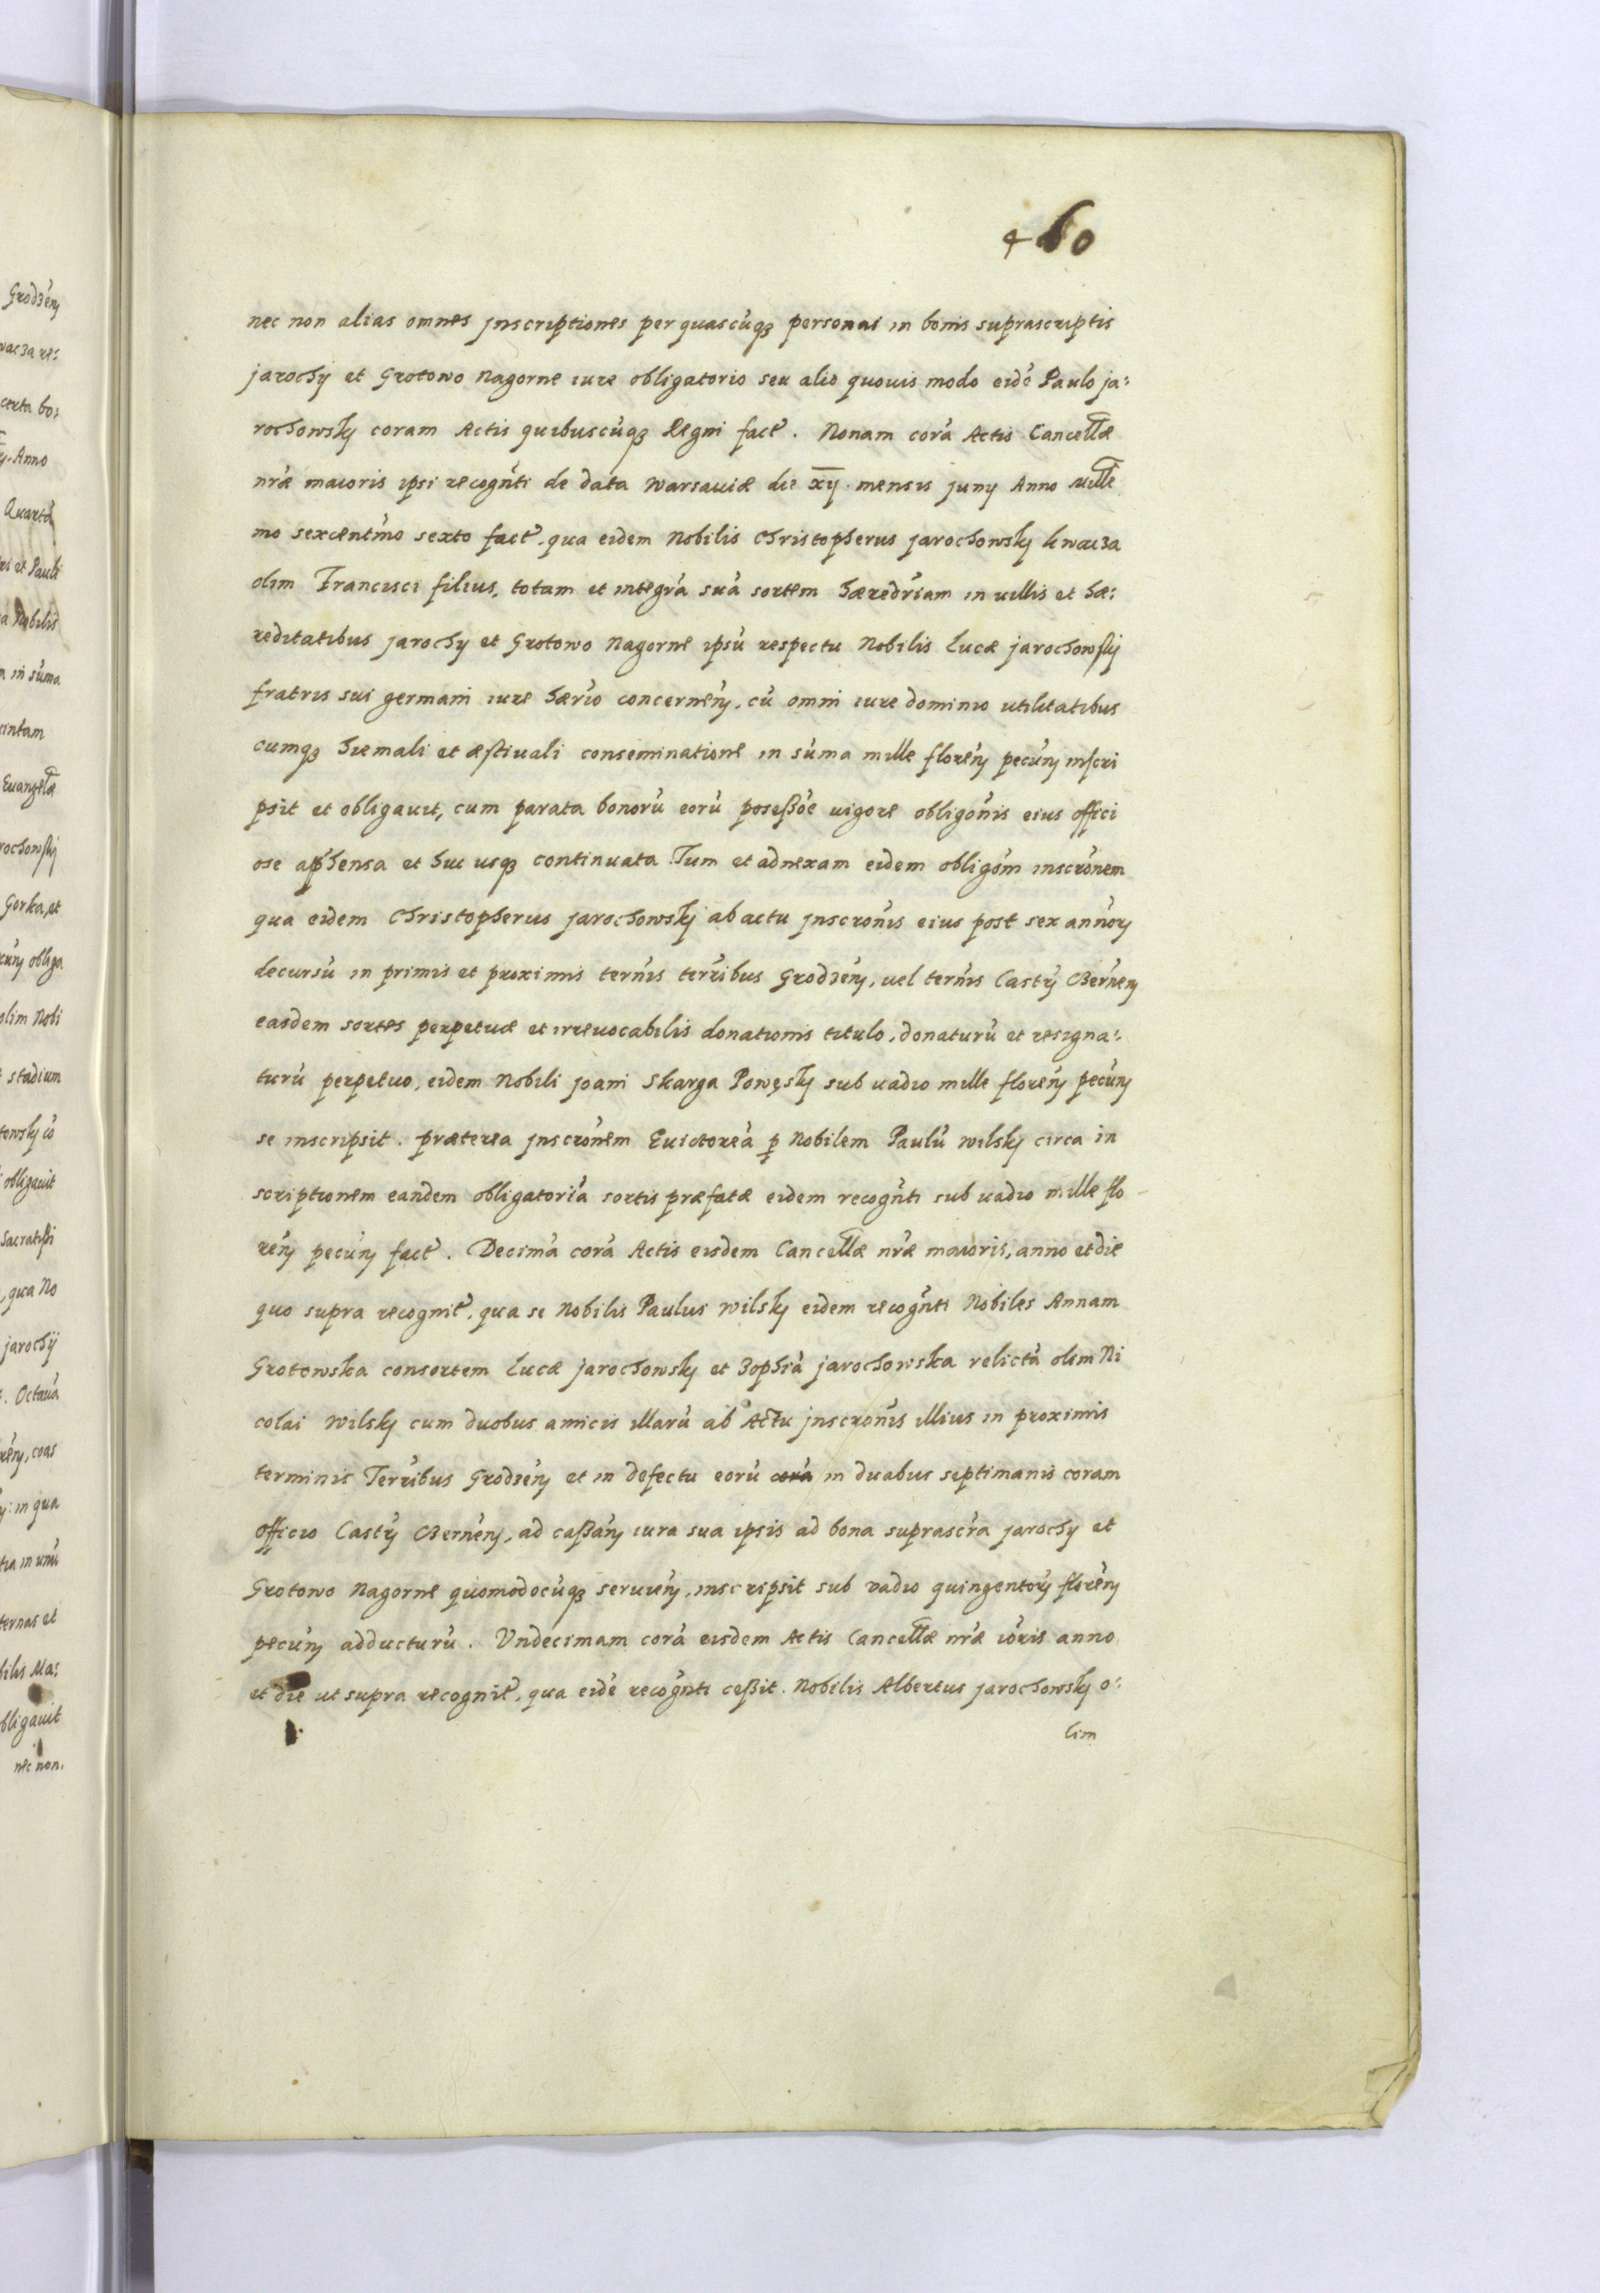 460
Grodzen̄
nec non alias omnes jnscriptiones per quascúqȝ personas in bonis suprascriptis
jarochÿ et Grotowo Nagorne iure obligatorio seu alio quouis modo eidé Paulo ja:
rochowskÿ coram Actis quibuscúqȝ Regni fact̃. Nonam corá Actis Cancellæ
nr̃æ maioris ipsi recogn̄ti de data Warsauiæ die xij mensis junÿ Anno mille
mo sexcentmo sexto fact̃. qua eidem Nobilis Christopherus jarochowskÿ kwacza
olim Francisci filius, totam et integrá suá sortem hæredr̃iam in uillis et hæ:
reditatibus jarochy et Grotowo Nagorne ipsú respectu Nobilis Lucæ jarochowskÿ
fratris sui germani iure hær̃io concernen̄. cú omni iure dominio utilitatibus
cumqȝ hiemali et æstiuali conseminatione in súma mille floren̄ pecun̄ inscri
psit et obligauit, cum parata bonorú eorú poseßõe uigore obligōnis eius offici
ose appħensa et huc usqȝ continuata. Tum et adnexam eidem obligōni inscrōnem
qua eidem Christopherus jarochowskÿ ab actu jnscrōnis eius post sex annorÿ
decursú in primis et proximis termīs terr̃ibus Grodzen̄, uel termīs Castr̃ Bernen̄
easdem sortes perpetuæ et irreuocabilis donationis titulo, donaturú et resigna:
turú perpetuo, eidem Nobili joani Skarga Powęskÿ sub uadio mille floren̄ pecun̄
se inscripsit. præterea jnscrōnem Euictoreá p Nobilem Paulú Wilskÿ circa in
scriptionem eandem obligatoriá sortis præfatæ eidem recogn̄ti sub uadio mille flo
ren̄ pecun̄ fact̃. Decimá corá Actis eisdem Cancellæ nr̃æ maioris, anno et die
quo supra recognit̃. qua se Nobilis Paulus Wilskÿ eidem recogn̄ti Nobiles Annam
Grotowska consortem Lucæ jarochowskÿ et Zophiá jarochowska relictá olim Ni
colai Wilskÿ cum duobus amicis illarú ab Actu jnscrōnis illius in proximis
terminis Terr̃ibus Grodzen̄ et in defectu eorú corá in duabus septimanis coram
officio Castr̃ Bernen̄, ad caßan̄ iura sua ipsis ad bona suprascr̃a jarochy et
Grotowo Nagorne quomodocúqȝ seruien̄. inscripsit sub vadio quingentorÿ floren̄
pecun̄ adducturú. Vndecimam corá eisdem Actis Cancellæ nr̃æ iōris anno
et die ut supra recognit̃. qua eidé recogn̄ti ceßit. Nobilis Albertus jarochowskÿ o:
lim